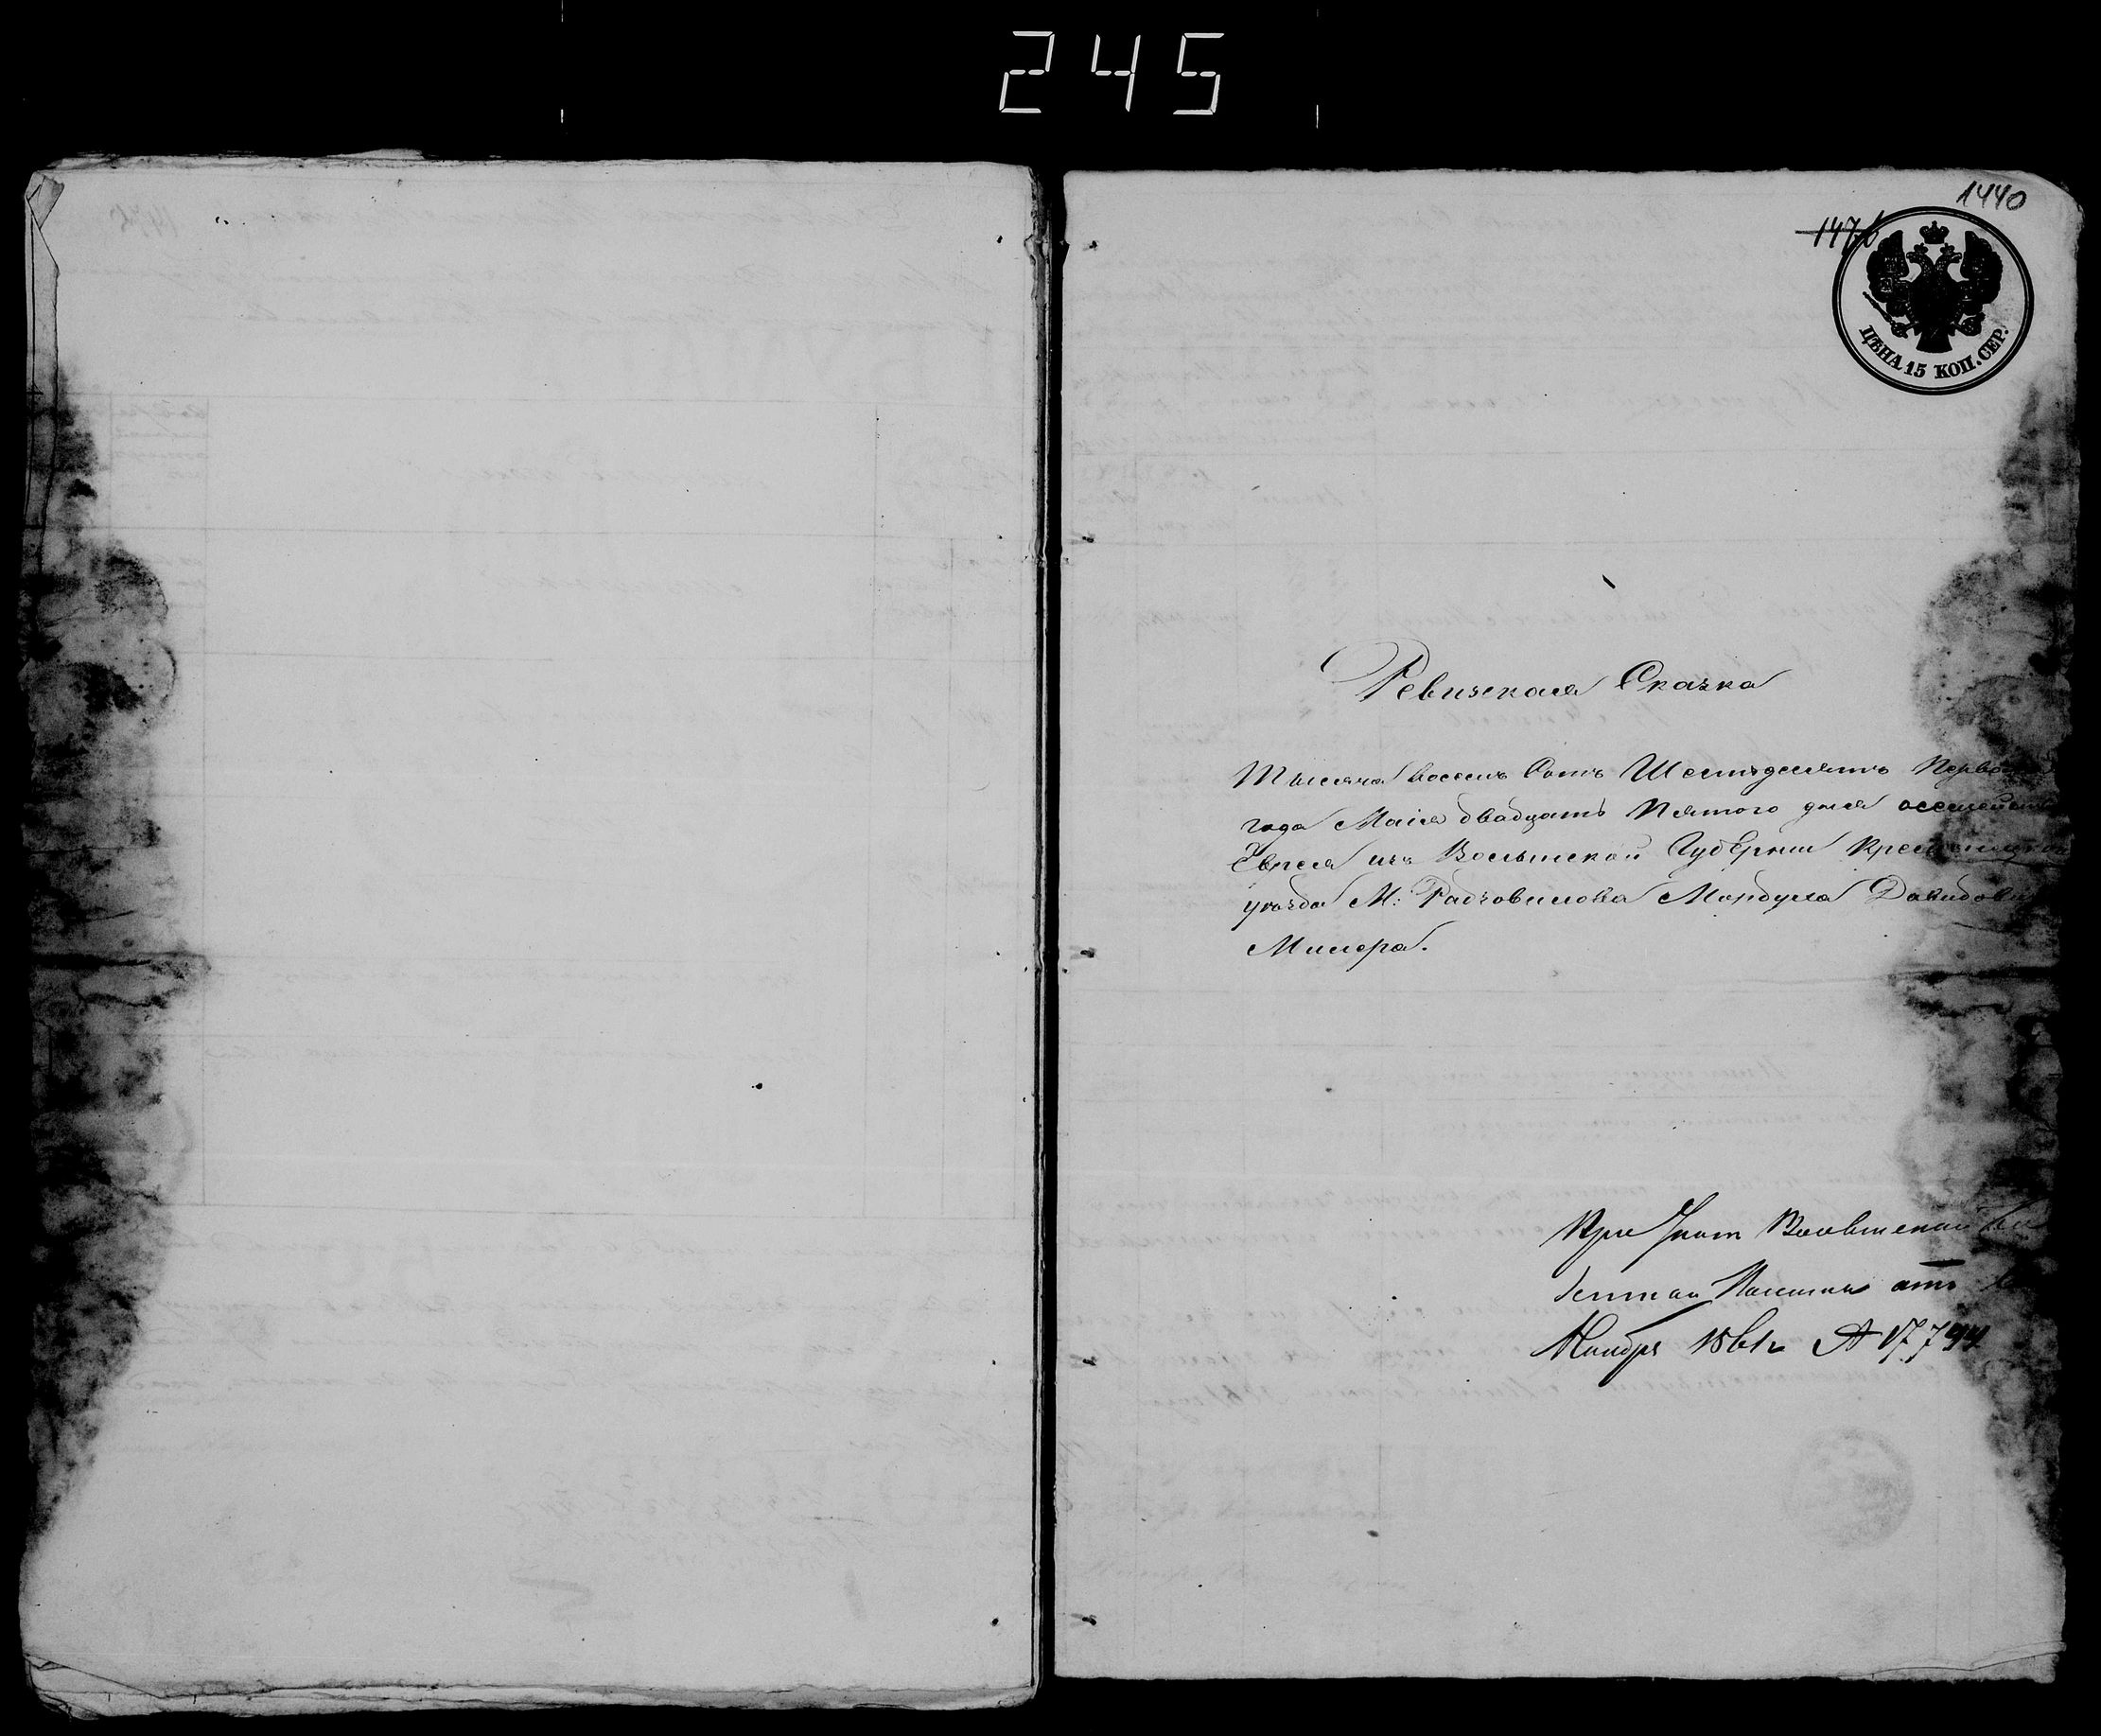 245
1440
1476
ЦѢНА 15 КОП. СЕР.
Ревизская Сказка
Тысяча восемь Сотъ Шестьдесятъ Перво
года Маія двадцать Пятого дня о семействѣ
Еврея изъ Волынской Губерніи Кремѣнецкого
уѣзда М: Радзовилова Мордуха Давидови
Милера.
При Волынской
Палаты отъ
Ноября 1861 № 17794